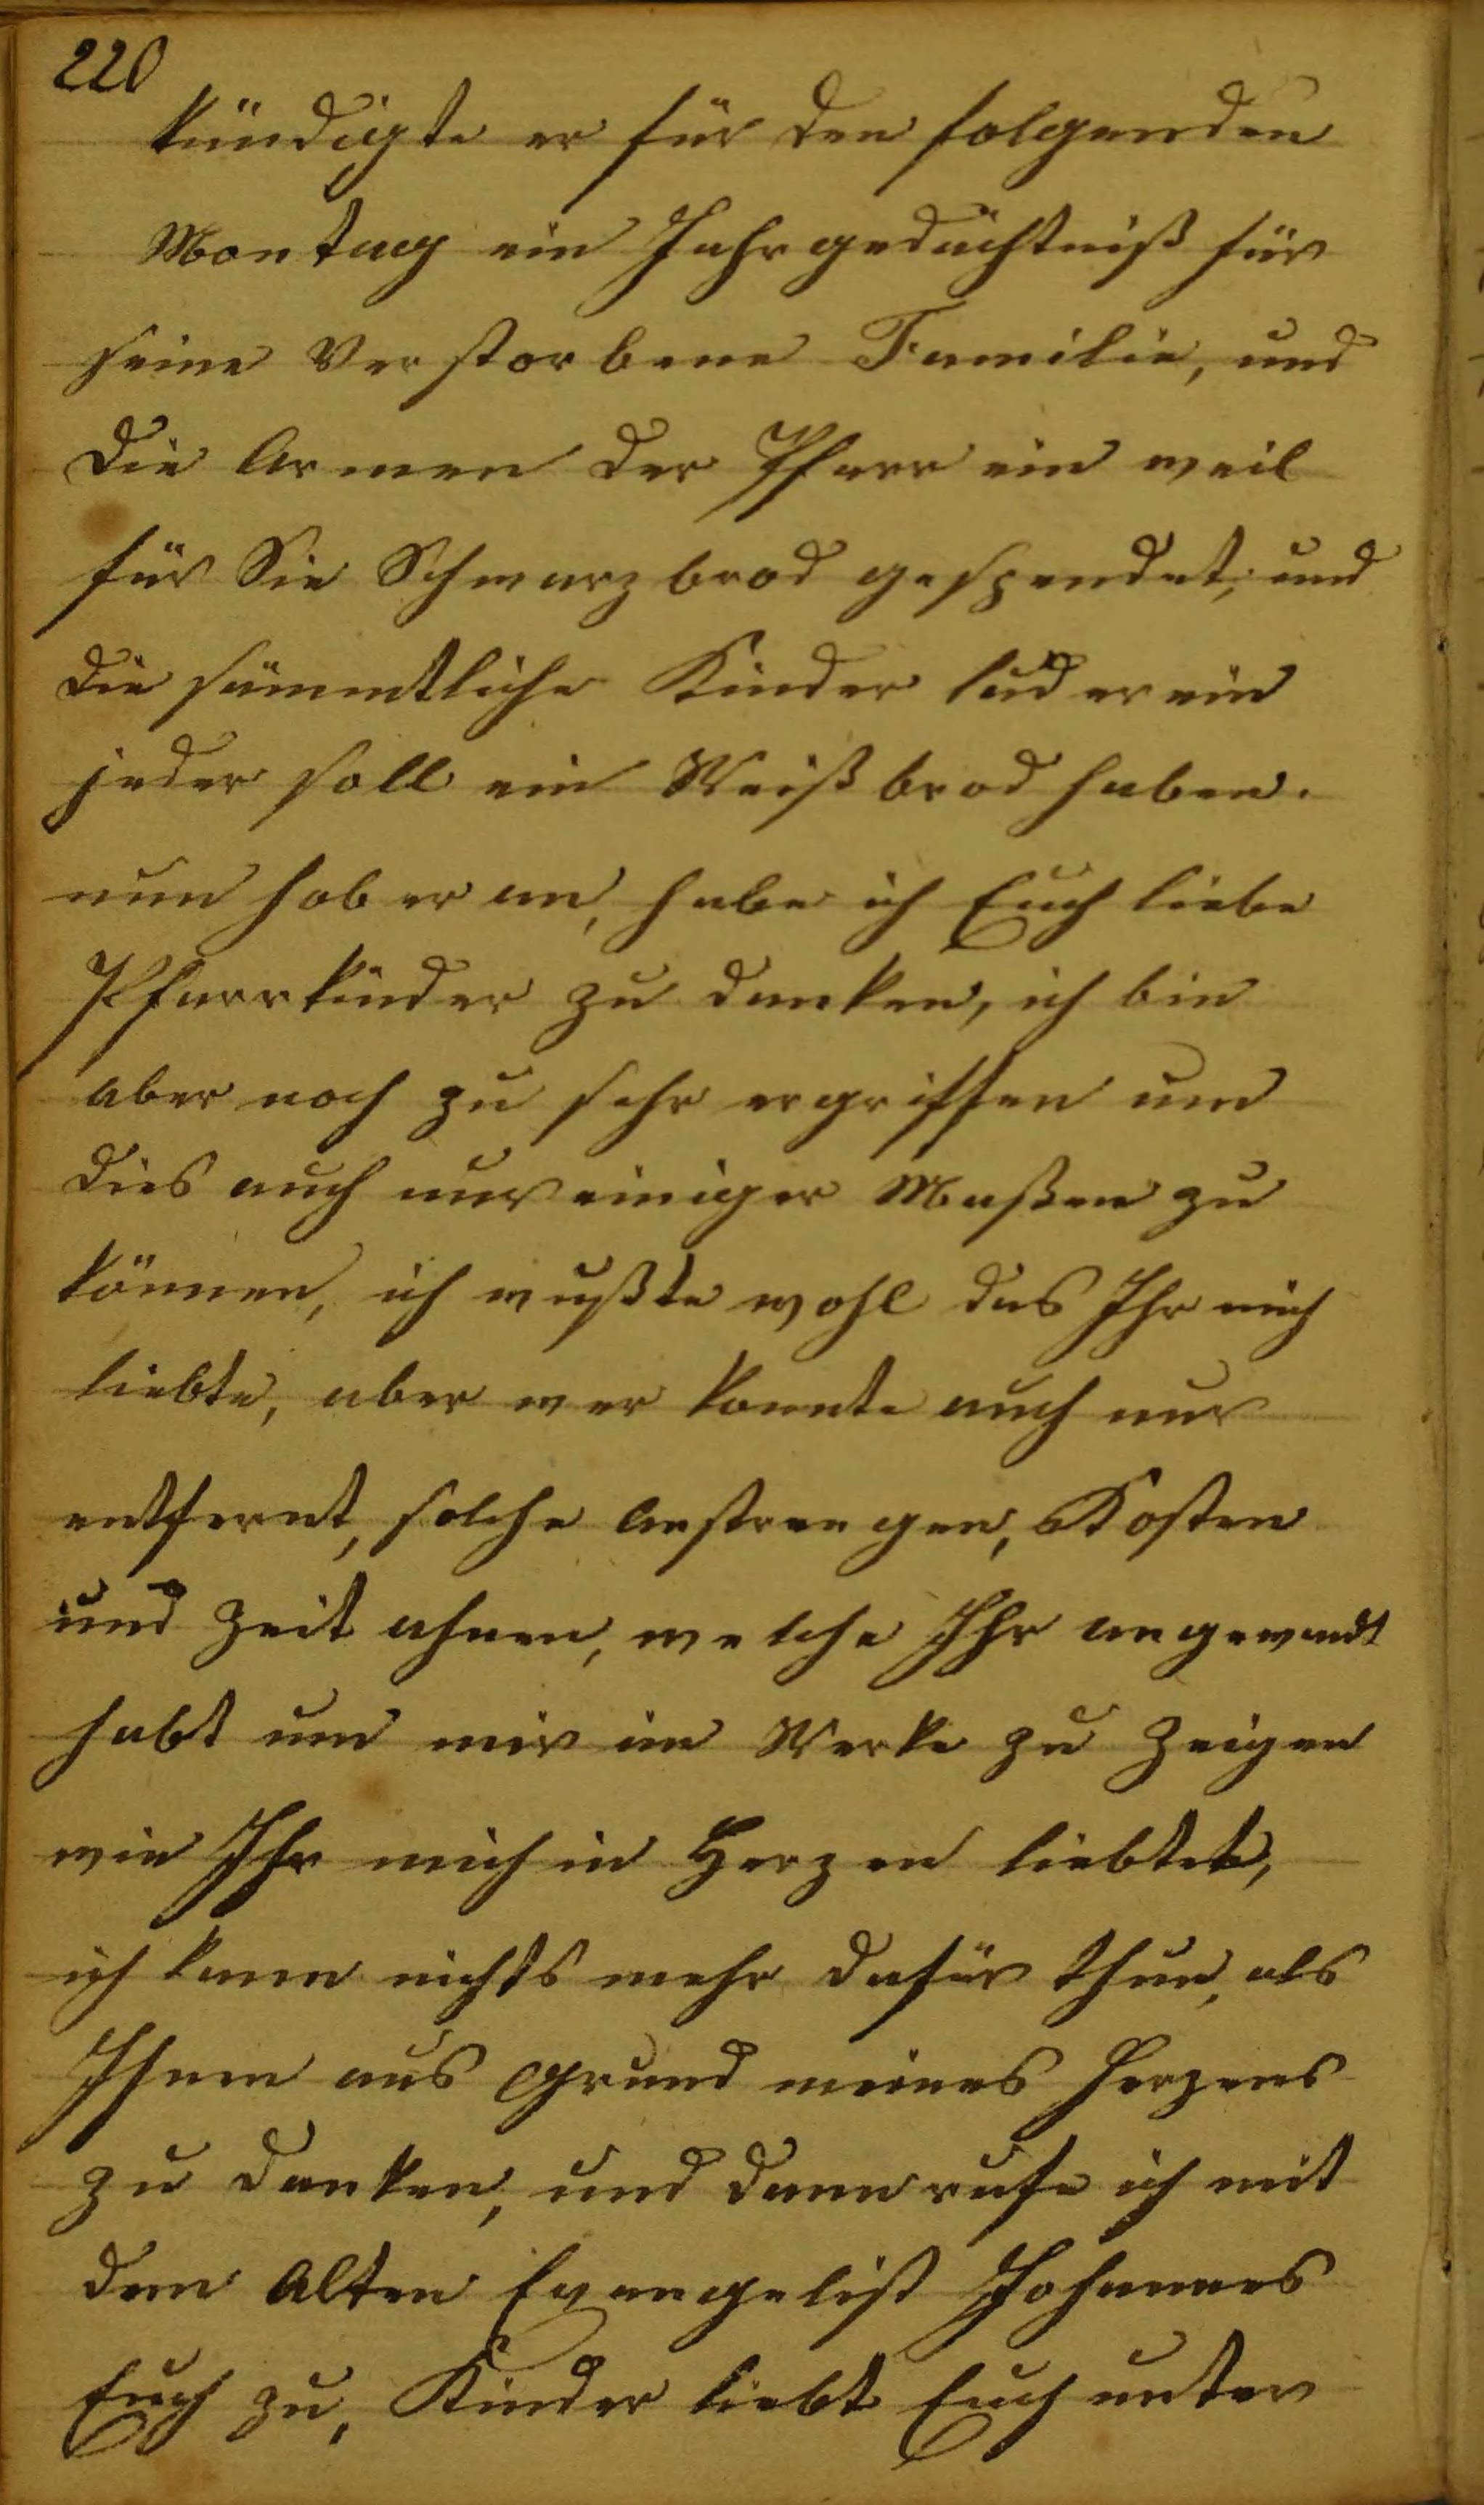 220
kündigte er für den folgenden
Montag ein Jahrgedächtniß für
seine Verstorbene Familie, und
die Armen der Pfarr ein weil
für Sie Schwarzbrod gespendet, und
die sämmtliche Kinder lud er ein
jeder soll ein Weißbrod haben.
nun hob er an, habe ich Euch liebe
Pfarrkinder zu danken, ich bin
aber noch zu sehr ergriffen um
dies auch nur einiger Maßen zu
können, ich wußte wohl das Ihr mich
liebte, aber wer konnte auch nur
entfernt, solche Anstrengen, Kosten
und Zeit ahnen, welche Ihr angewandt
habt um mir im Werke zu zeigen
wie Ihr mich in Herzen liebtet,
ich kann nichts mehr dafür thun, als
Ihnen aus Grund meines Herzens
zu danken, und dann rufe ich mit
dem Alten Evangelist Johannes
Euch zu, Kinder liebt Euch unter